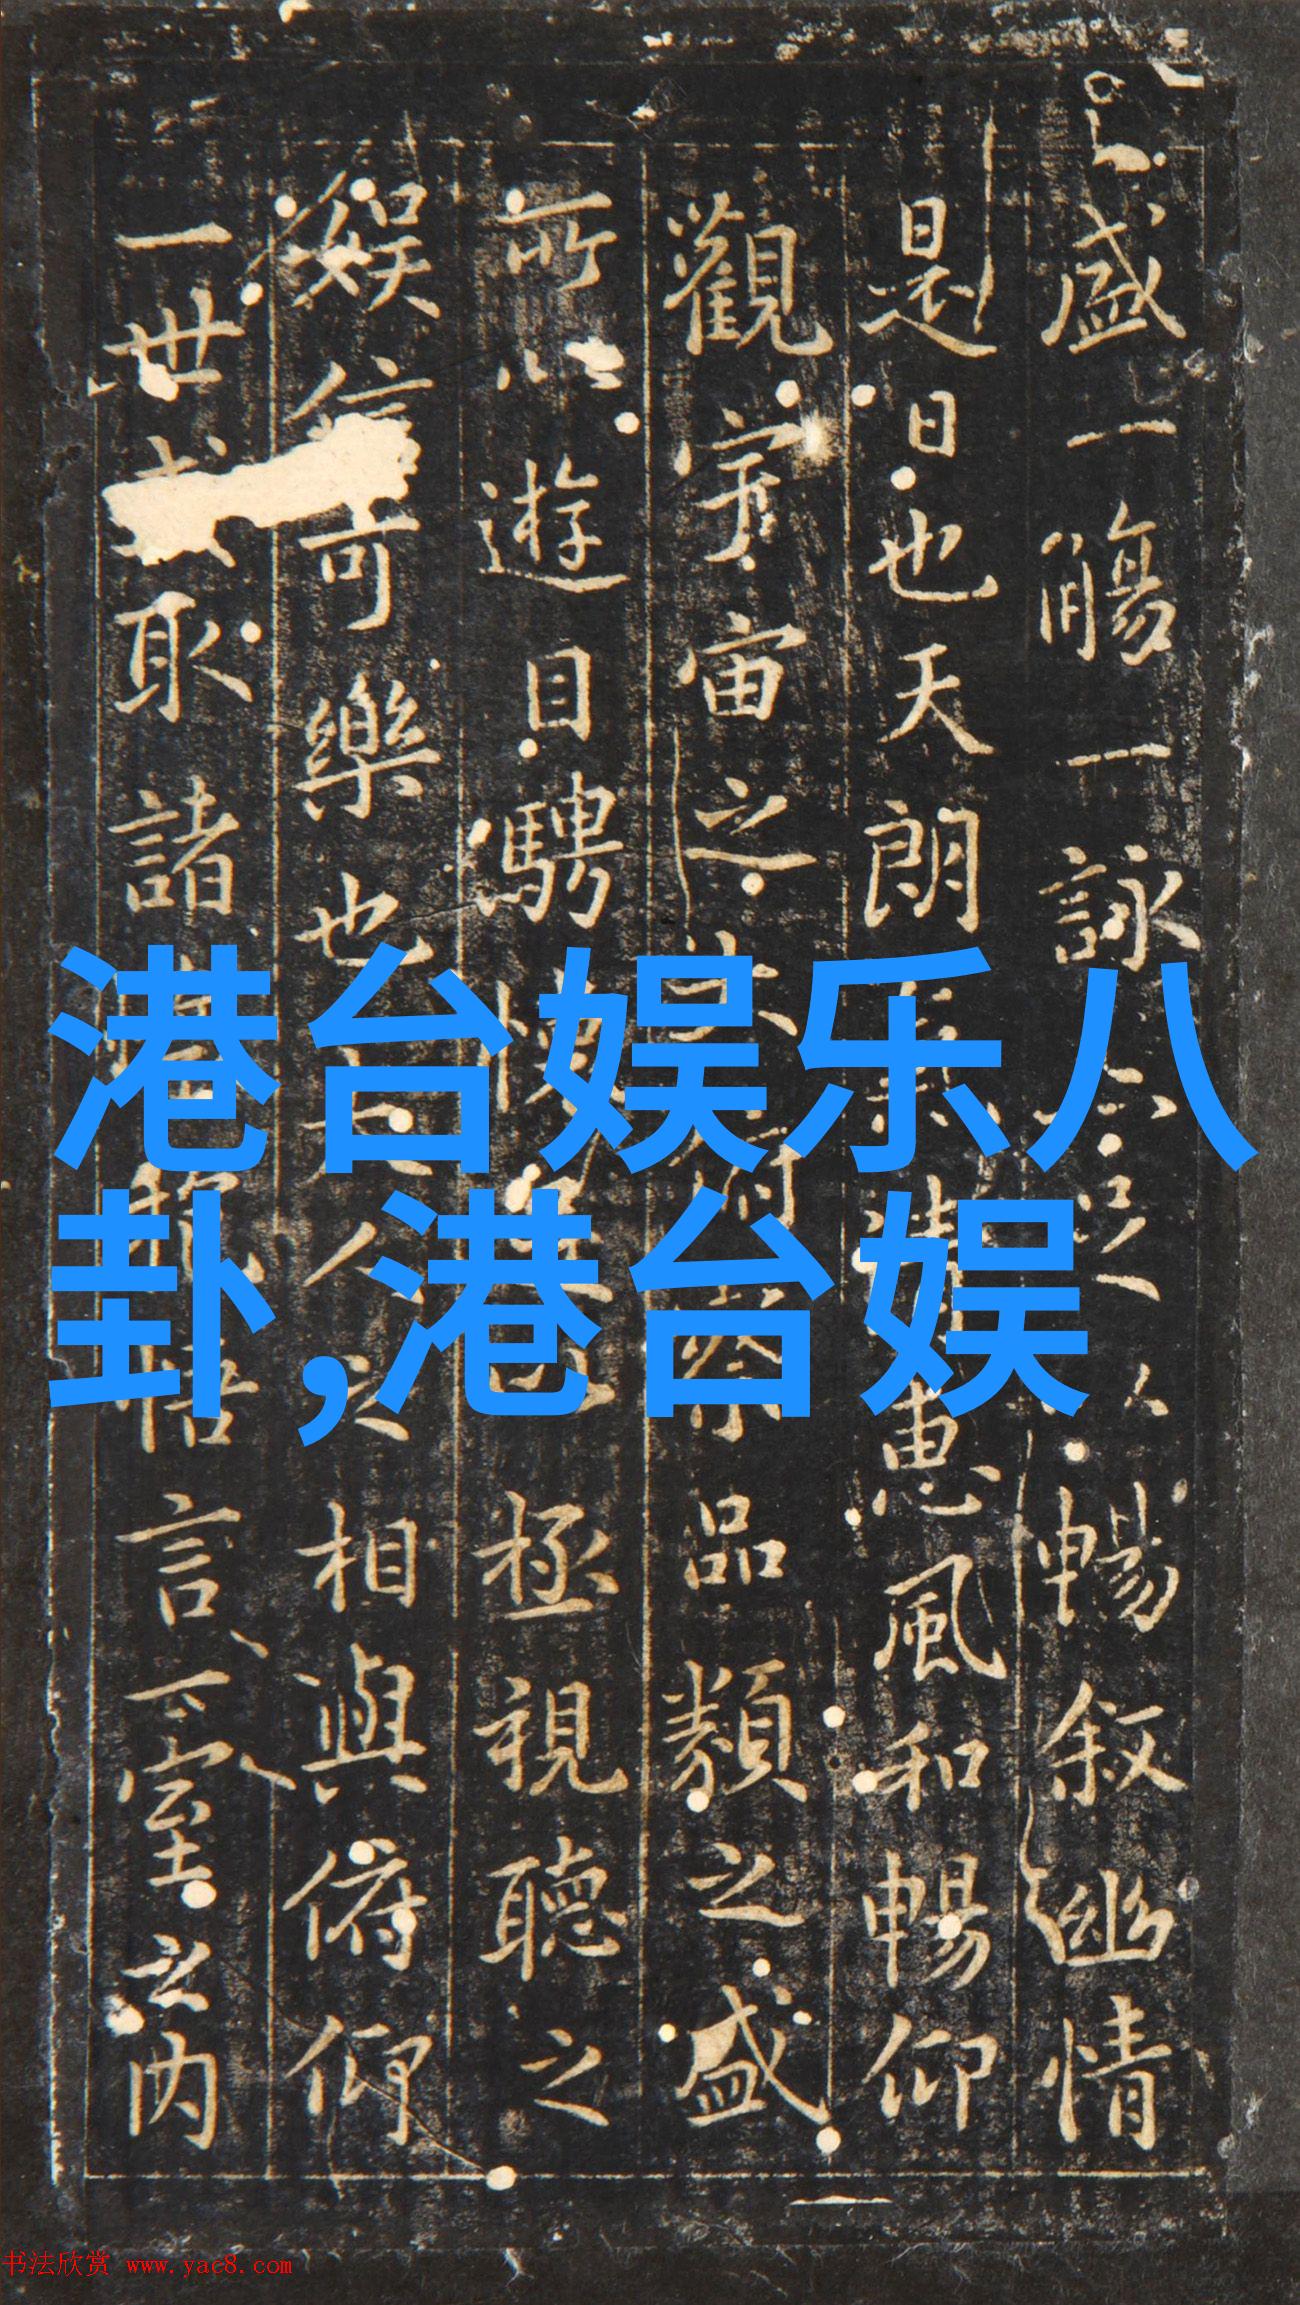 盛一觴一詠亦足以暢叙幽情
是日也天朗氣清惠風和暢仰
觀宇宙之大俯察品類之盛
所以遊目騁懷足以極視聽之
娛信可樂也夫人之相與俯仰
一世取諸悟言一室之內
港台娱乐八
卦,港台娱
书法欣赏 www.yac8.com